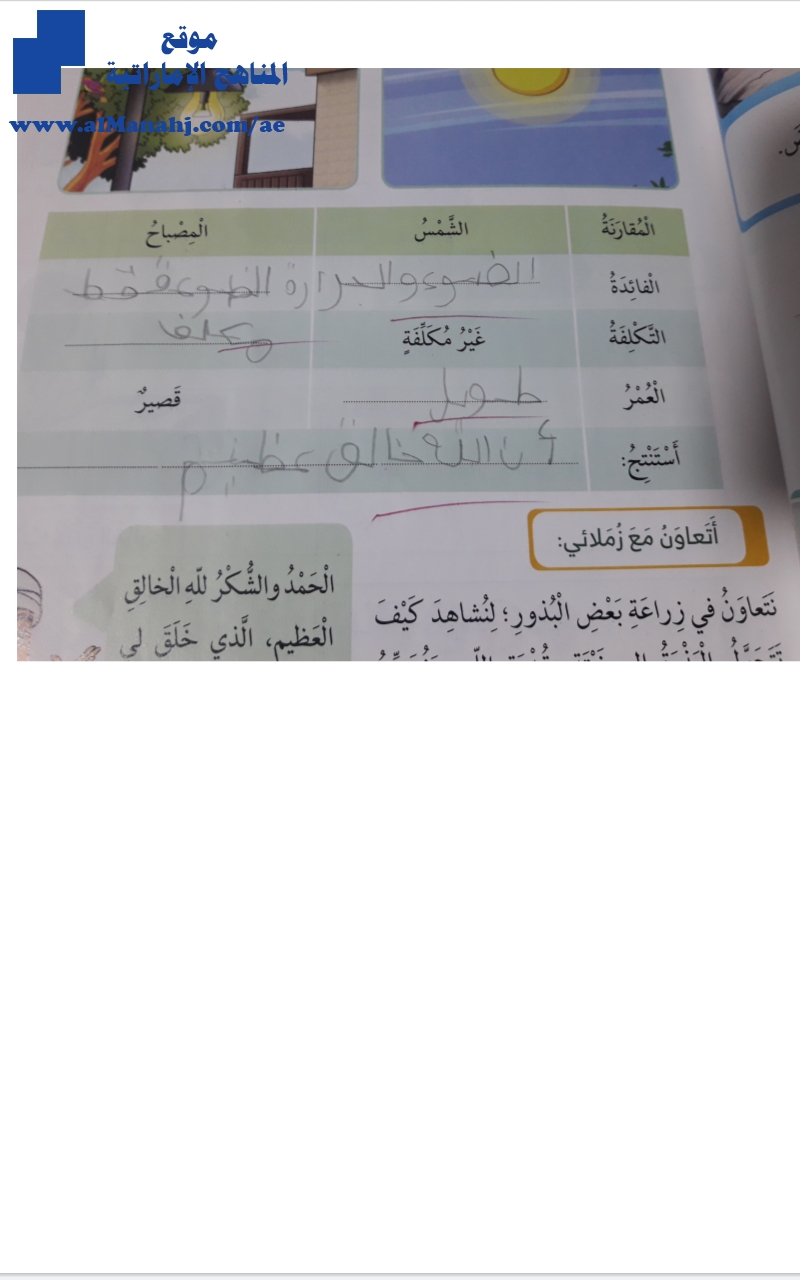 موقع
المناهج الإماراتية
www.alManahj.com/ae
الْمُقارَنَةُ الشَّمْسُ الْمِصْباحُ
الْفائِدَةُ الضوء والحرارة الظوء فقط
التَّكْلِفَةُ غَيْرُ مُكَلِّفَةٍ مكلف
الْعُمْرُ طويل قَصيرٌ
أَسْتَنْتِجُ: أن الله خالق عظيم
أَتَعاوَنُ مَعَ زُمَلائي:
نَتَعاوَنُ في زِراعَةِ بَعْضِ الْبُذورِ؛ لِنُشاهِدَ كَيْفَ
الْحَمْدُ والشُّكْرُ للّهِ الْخالِقِ
الْعَظيمِ، الَّذي خَلَقَ لي